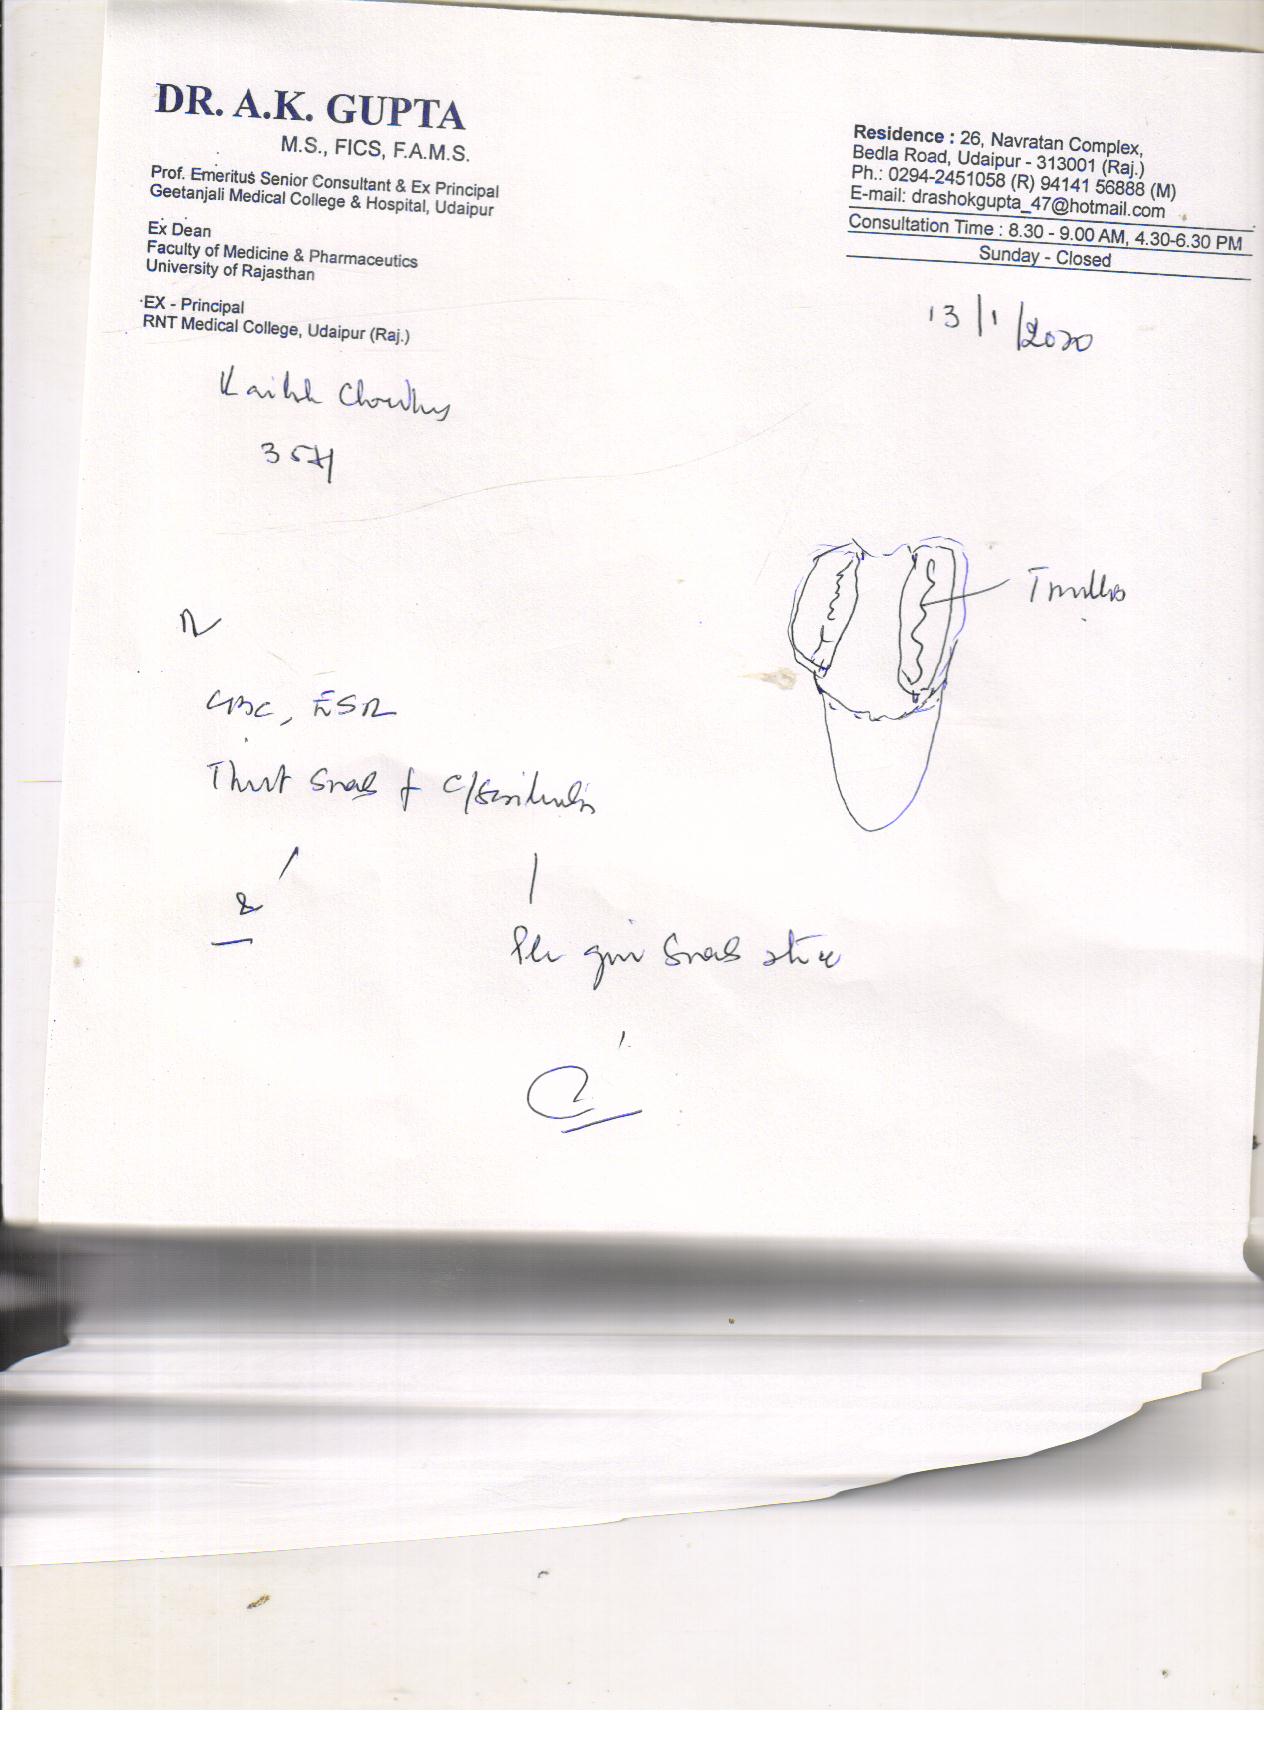 DR. A.K. GUPTA
M.S., FICS, F.A.M.S.
Prof. Emeritus Senior Consultant & Ex Principal
Geetanjali Medical College & Hospital, Udaipur
Ex Dean
Faculty of Medicine & Pharmaceutics
University of Rajasthan
EX - Principal
RNT Medical College, Udaipur (Raj.)
Residence : 26, Navratan Complex,
Bedla Road, Udaipur - 313001 (Raj.)
Ph.: 0294-2451058 (R) 94141 56888 (M)
E-mail: drashokgupta_47@hotmail.com
Consultation Time : 8.30 - 9.00 AM, 4.30-6.30 PM
Sunday - Closed
13/1/2020
35
CBC, ESR
Throat Swab f C/
Swab stick